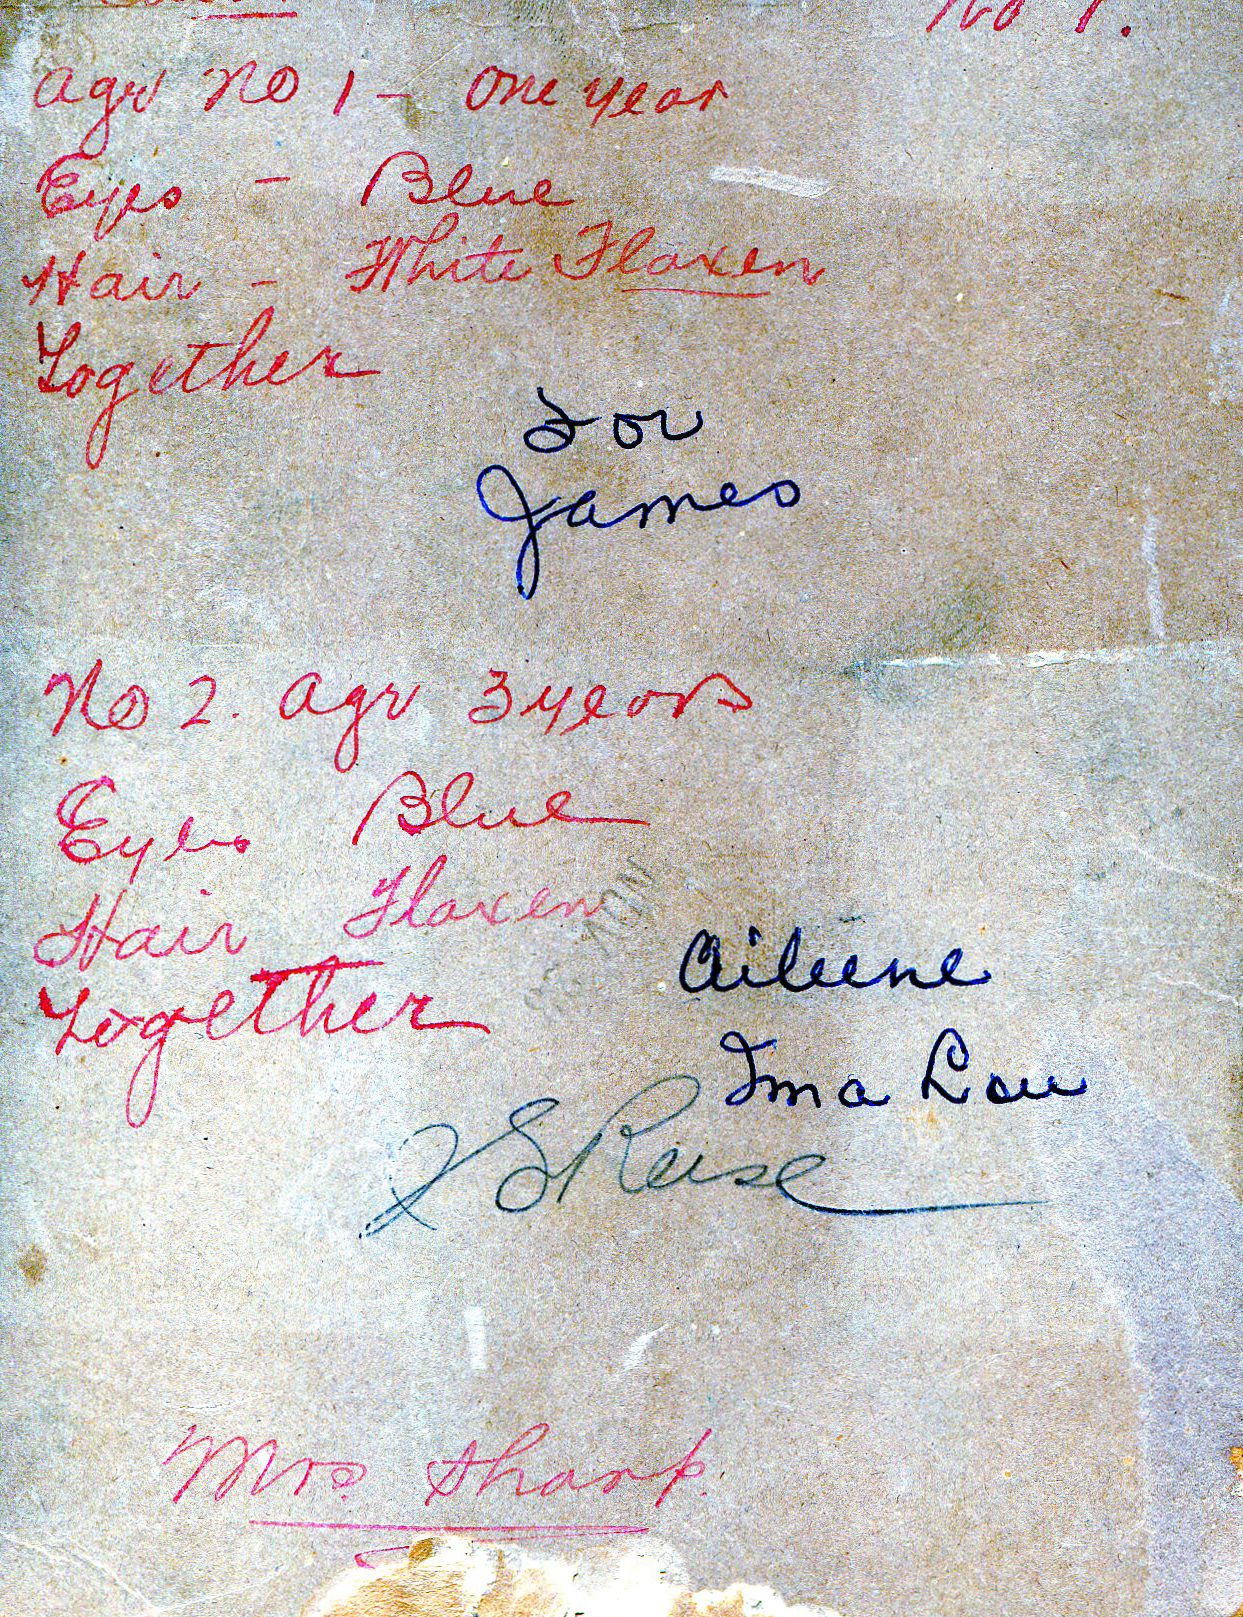 No 1.
Age No 1 - One year
Eyes - Blue
Hair - White Flaxen
Together
For
James
No 2. Age 3 years
Eyes Blue
Hair Flaxen
Together
Aileene
Ima Lou
Mrs. Sharp.